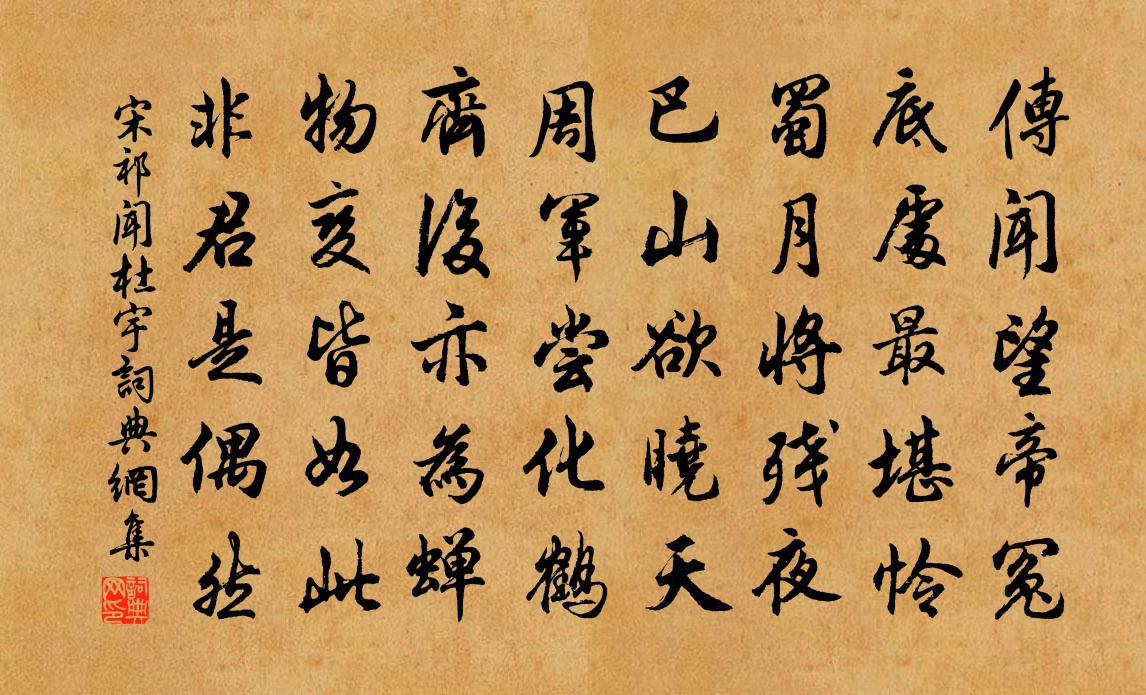 傳聞望帝冤
底處最堪怜
蜀月將残夜
巴山欲曉天
周軍嘗化鶴
齊後亦為蝉
物变皆如此
非君是偶然
宋祁聞杜宇詞典網集
詞典网印